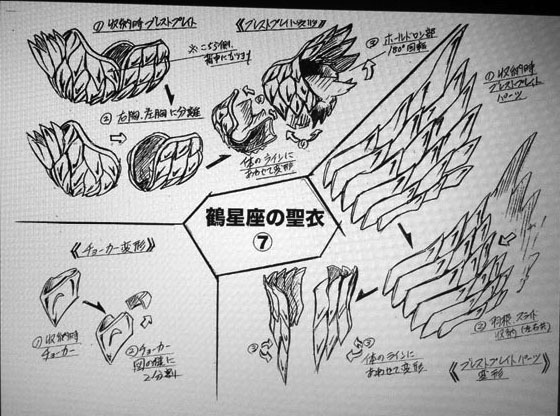 ① 収納時ブレストプレイト
※こちら側、
背中になります
② 右胸、左胸に分離
体のラインに
あわせて変形
180°回転
① 収納時
ブレストプレイト
パーツ
鶴星座の聖衣
⑦
《チョーカー変形》
① 収納時
チョーカー
② チョーカー
2分割
② 羽根、スライド
収納(左右共)
③
体のラインに
あわせて変形
《ブレストプレイトパーツ
変形》